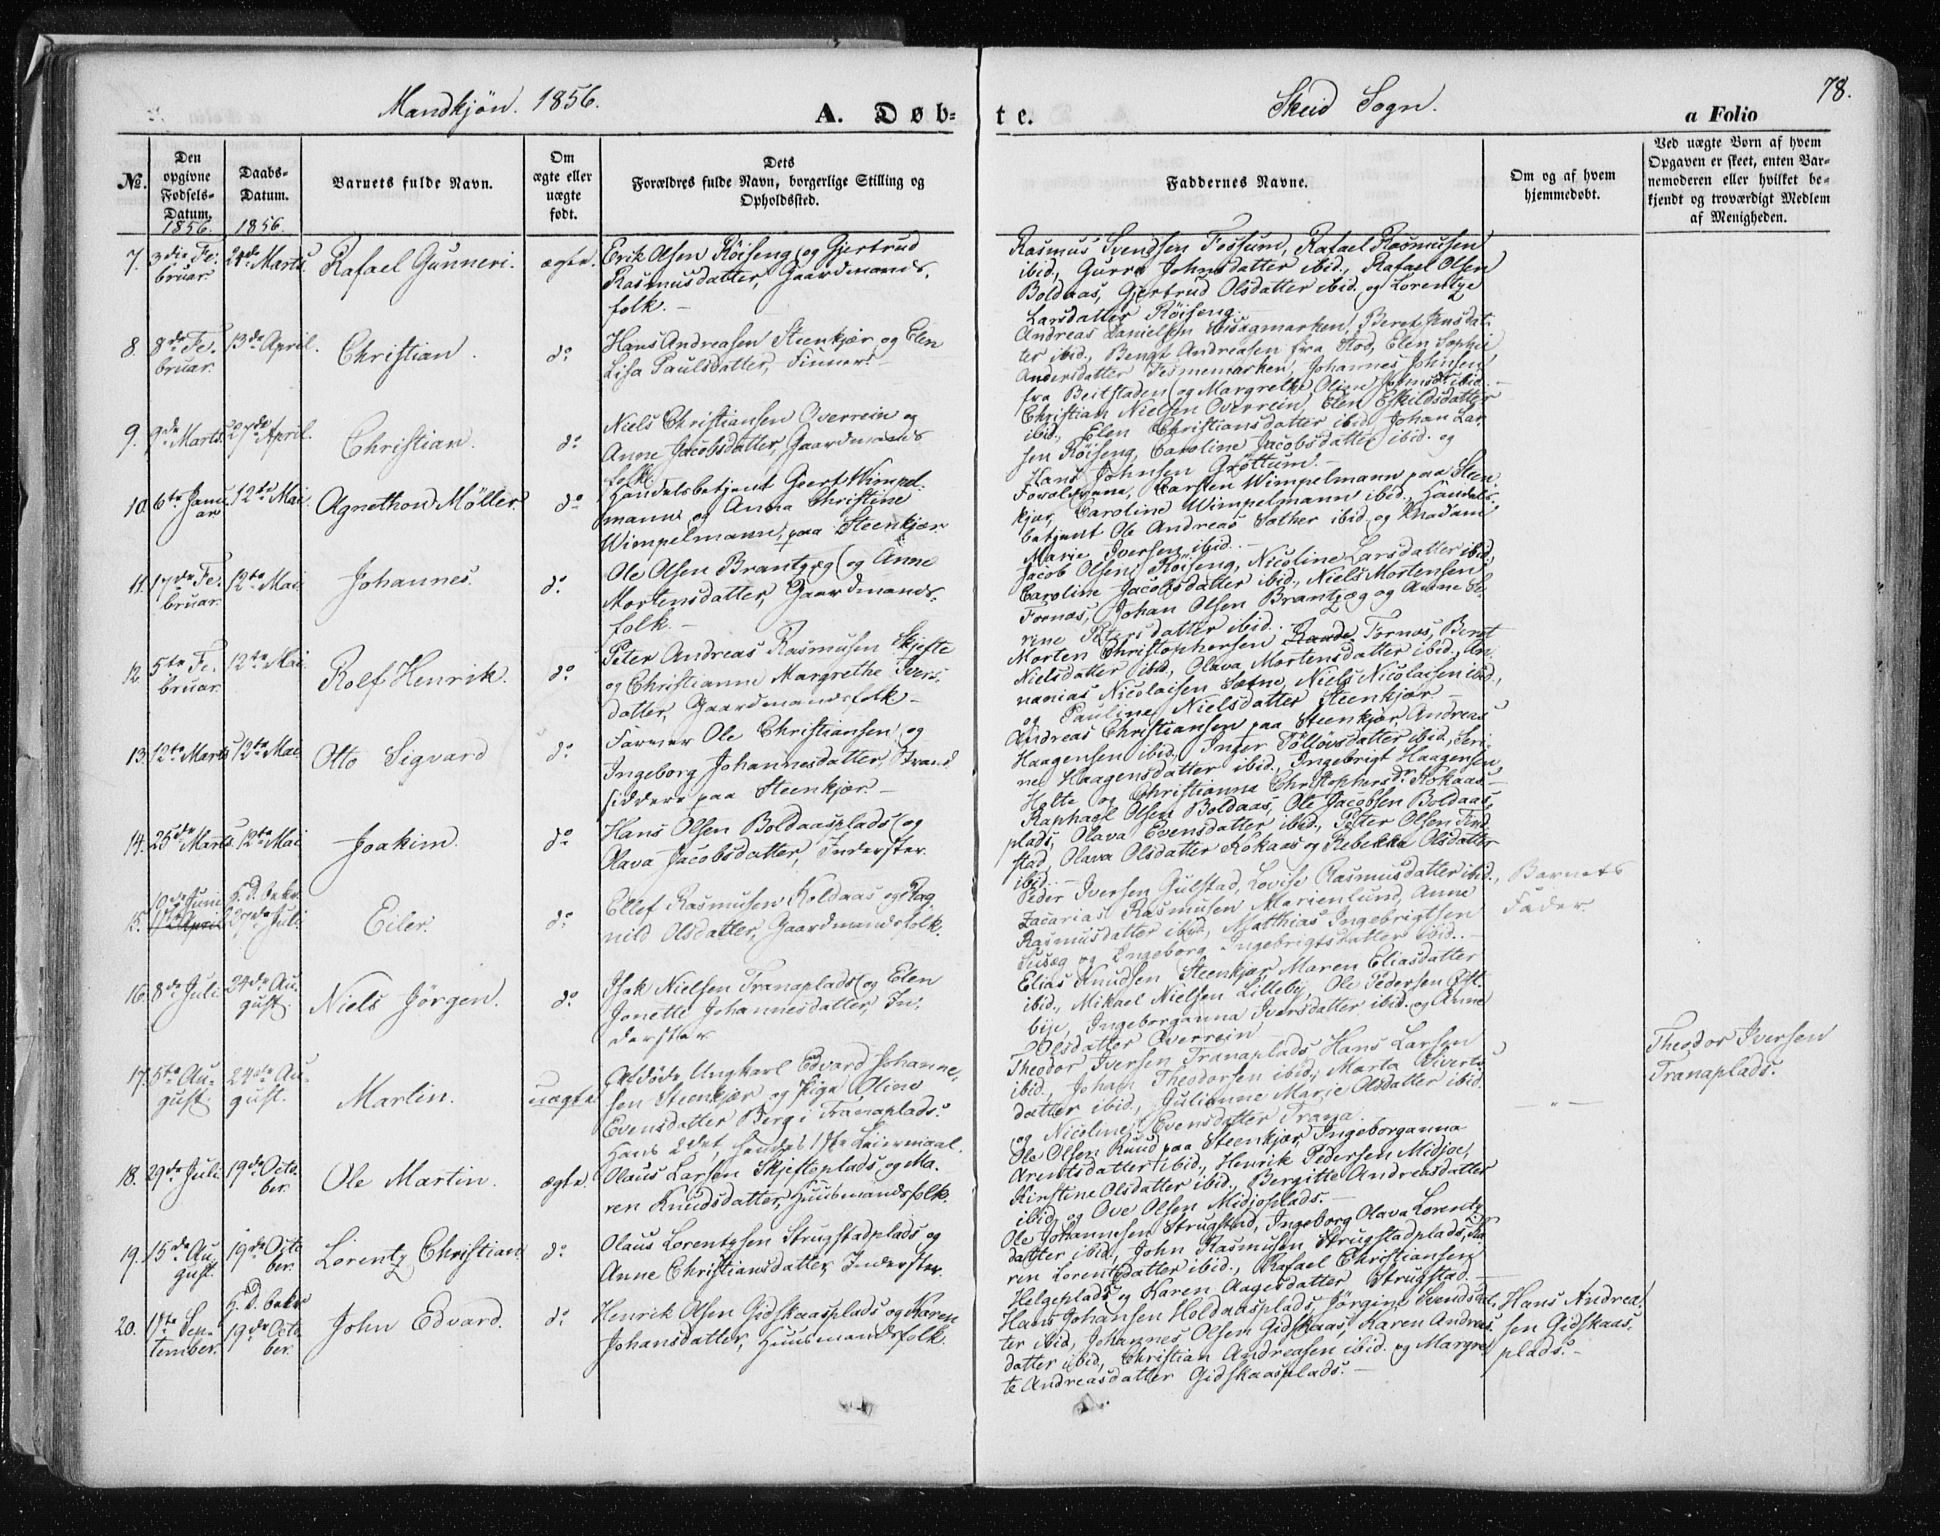 Mandkjøn. 1856.
A. Døb-
te.
Skeid Sogn.
78.
a Folio
No.
Den opgivne Fødsels-Datum.
1856.
Daabs-Datum.
1856.
Barnets fulde Navn.
Om ægte eller uægte født.
Dets
Forældres fulde Navn, borgerlige Stilling og
Opholdssted.
Faddernes Navne.
Om og af hvem
hjemmedøbt.
Ved uægte Børn af hvem
Opgaven er skeet, enten Bar-
nemoderen eller hvilket be-
kjendt og troværdigt Medlem
af Menigheden.
7. 3die Fe-
bruar.
24de Marts.
Rafael Gunneri.
ægte.
Erik Olsen Röiseng og Gjertrud
Rasmusdatter, Gaardmands-
folk.-
Rasmus Svendsen Fossum, Rafael Rasmusen
ibid., Gurru Johnsdatter ibid., Rafael Olsen
Boldaas, Gjertrud Olsdatter ibid. og Lorentze
Larsdatter Röiseng.
8. 8de Fe-
bruar.
13de April.
Christian.
do
Hans Andreasen Steenkjær og Elen
Lisa Paulsdatter, Finner.-
Andreas Danielsen , Beret Jensdat-
ter ibid., Bengt Andreasen fra Stod, Elen Sophie
Andersdatter , Johannes Johnsen
fra Beitstaden og Margrethe Oline Johnsdtr ibid.-
9. 9de Marts.
27de April.
Christian.
do
Niels Christiansen Overrein og
Anne Jacobsdatter, Gaardmands
folk
Christian Nielsen Overrein, Elen Eskildsdatter
ibid., Elen Christiansdatter ibid. Johan Lar-
sen Röiseng, Caroline Jacobsdatter ibid. og
Hans Johnsen Gröttum.-
10. 6te Janu-
ar
12te Mai
Agnethon Möller.
do
Handelsbetjent Geert Wimpel-
mann og Anna Christine
Wimpelmann, paa Steenkjær.
Forældrene, Carsten Wimpelmann paa Steen-
kjær, Caroline Wimpelmann ibid., Handels-
betjent Ole Andreas Sather ibid. og Madam
Marie Iversen ibid.-
11. 17de Fe-
bruar.
12te Mai.
Johannes.
do
Ole Olsen Brantzæg og Anne
Mortensdatter, Gaardmands-
folk.-
Jacob Olsen Röiseng, Nicoline Larsdatter ibid.,
Caroline Jacobsdatter ibid., Niels Mortensen
Fornæs, Johan Olsen Brantzæg og Anne Se-
rine Petersdatter ibid.
12. 5te Fe-
bruar.
12te Mai
Rolf Henrik.
do
Peter Andreas Rasmusen Skjefte
og Christianne Margrethe Ivers-
datter, Gaardmandsfolk-
Morten Christophersen Fornæs, Beret
Nielsdatter ibid., Olava Mortensdatter ibid., An-
nanias Nicolaisen Sætne, Niels Nicolaisen ibid.,
og Pauline Nielsdatter Steenkjær.-
13. 12te Marts
12te Mai.
Otto Sigvard
do
Farver Ole Christiansen og
Ingeborg Johannesdatter, Strand
siddere paa Steenkjær.-
Andreas Christiansen paa Steenkjær, Andreas
Haagensen ibid., Inger Töllövsdatter ibid., Seri-
ne Haagensdatter ibid., Ingebrigt Haagensen
Holte og Christianne Christophersdr. Rokaas.-
14. 25de Marts.
12te Mai
Joakim.
do
Hans Olsen Boldaasplads og
Olava Jacobsdatter, Inderster.
Raphael Olsen Boldaas, Ole Jacobsen Boldaas-
plads, Olava Evensdatter ibid., Peter Olsen Find-
stad, Olava Olsdatter Rokaas og Rebekka Olsdatter
ibid.-
15. 10de Juni
27de Juli.
Eiler.
do
Ellef Rasmusen Koldaas og Rag-
nild Olsdatter, Gaardmandsfolk.
Peder Iversen Gulstad, Lovise Rasmusdatter ibid.,
Zacarias Rasmusen Marienlund, Anne
Rasmusdatter ibid., Matthias Ingebrigtsen
Susæg og Ingeborg Ingebrigtsdatter ibid.-
Barnets
Fader.
16. 8de Juli
24de Au-
gust.
Niels Jörgen.
do
Isak Nielsen Tranaplads og Elen
Jonette Johannesdatter, In-
derster
Elias Knudsen Steenkjær, Maren Eliasdatter
ibid., Mikael Nielsen Lilleby, Ole Pedersen Öst-
bye, Ingeborganna Iversdatter ibid. og Anne
Olsdatter Overrein
17. 5te Au-
gust.
24de Au-
gust.
Martin.
uægte
Afdöde Ungkarl Edvard Johanne-
sen Steenkjær og Pige Oline
Evensdatter Berg i Tranaplads.
Hans 2det, hendes 1ste Leiermaal.
Theodor Iversen Tranaplads Hans Larsen
ibid., Johan Theodorsen ibid., Marta Siverts-
datter ibid., Julianne Marie Olsdatter ibid.
og Nicoline Evensdatter Trana.
— " —
Theodor Iversen
Tranaplads.
18. 29de Juli
19de Octo-
ber.
Ole Martin.
ægte.
Olaus Larsen Skjefteplads og Ma-
ren Knudsdatter, Huusmandsfolk.
Ole Olsen Ruud paa Steenkjær, Ingeborganna
Arentsdatter ibid., Henrik Pedersen Midjoe,
Kirstine Olsdatter ibid., Bergitte Andreasdatter
ibid. og Ove Olsen Midjoplads.-
19. 15de Au-
gust.
19de Octo
ber.
Lorentz Christian
do
Olaus Lorentzsen Strugstadplads og
Anne Christiansdatter Inderster.
Ole Johannesen Strugstad, Ingeborg Olava Lorentz-
datter ibid., John Rasmusen Strugstadplads, Ka-
ren Lorentzdatter ibid., Rafael Christiansen
Helgeplads og Karen Aagesdatter Strugstad.-
20. 1ste Sep-
tember.
19de Octo-
ber.
John Edvard.
do
Henrik Olsen Gidskaasplads og Karen
Johansdatter, Huusmandsfolk.
Hans Johansen Holdaasplads, Jörgine Svendsdat-
ter ibid., Johannes Olsen Gidskaas, Karen Andreas-
datter ibid., Christian Andreasen ibid. og Margre-
te Andreasdatter Gidskaasplads.-
Hans Andrea-
sen Gidskaas-
plads.-